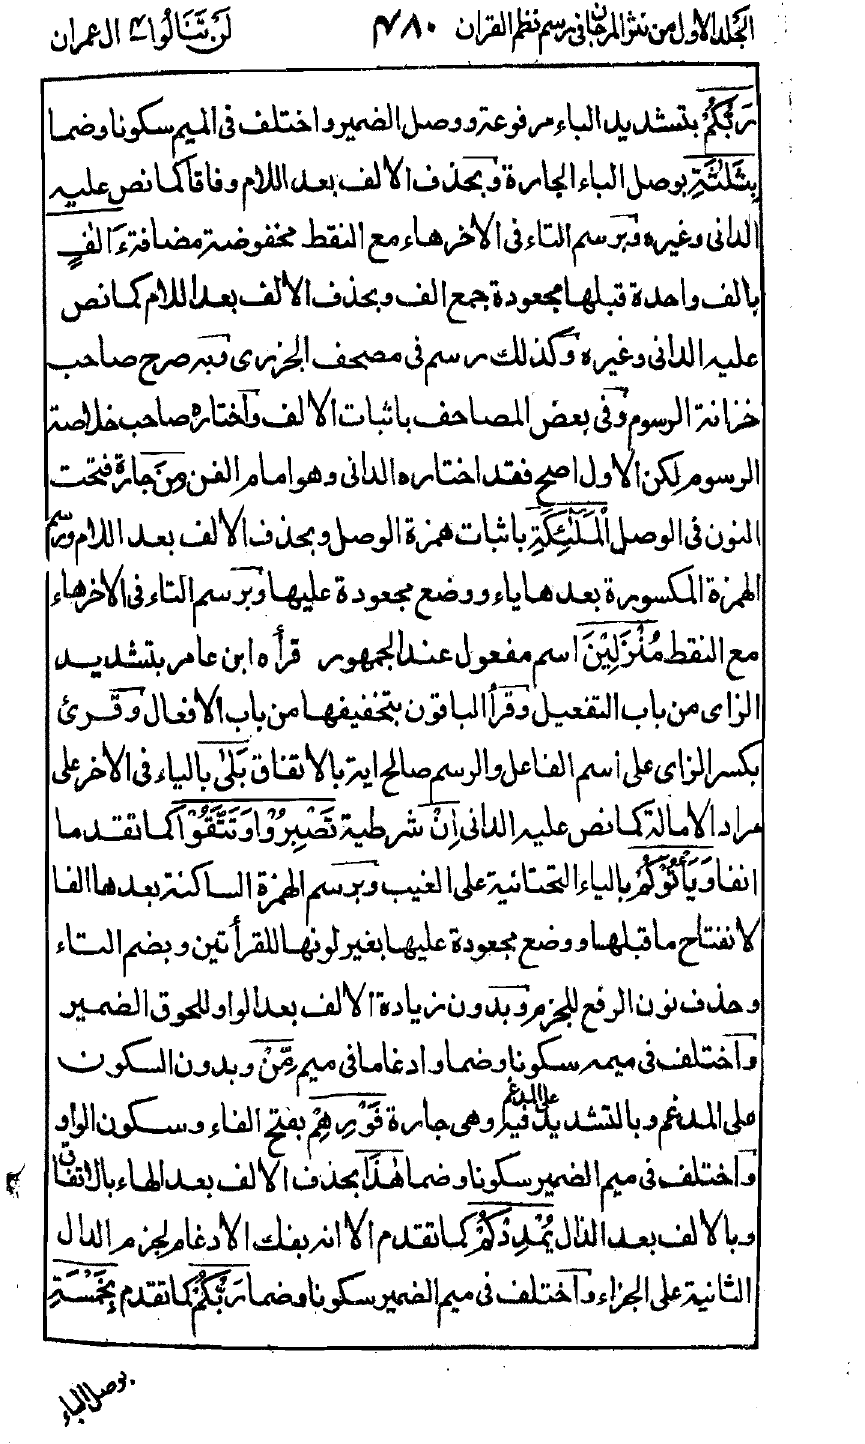 الجلد الاول من نثر المرجان في رسم نظم القران ٤٨٠ لن تنالوا ٤ ال عمران
رَبُّكُمْ بتشديد الباء مرفوعة ووصل الضمير واختلف فى الميم سكونا وضما
بِثَلٰثَةِ بوصل الباء الجارة وبحذف الالف بعد اللام وفاقا كما نص عليه
الدانى وغيره وبرسم التاء فى الاخرهاء مع النقط مخفوضة مضافة ءَالٰفٍ
بالف واحدة قبلها مجعودة جمع الف وبحذف الالف بعد اللام كما نص
عليه الدانى وغيره وكذلك رسم فى مصحف الجزرى وبه صرح صاحب
خزانة الرسوم وفى بعض المصاحف باثبات الالف واختاره صاحب خلاصة
الرسوم لكن الاول اصح فقد اختاره الدانى وهو امام الفن مِنَ جارة فتحت
النون فى الوصل الْمَلٰٓئِكَةِ باثبات همزة الوصل وبحذف الالف بعد اللام ورسم
الهمزة المكسورة بعدها ياء ووضع مجعودة عليها وبرسم التاء فى الاخرهاء
مع النقط مُنْزَلِيْنَ اسم مفعول عند الجمهور قرأه ابن عامر بتشديد
الزاى من باب التفعيل وقرأ الباقون بتخفيفها من باب الافعال وقرئ
بكسر الزاى على اسم الفاعل والرسم صالح اية بالاتفاق بَلٰى بالياء فى الاخر على
مراد الامالة كما نص عليه الدانى اِنْ شرطية تَصْبِرُوْا وَتَتَّقُوْا كما تقدم ما
انفا وَيَأْتُوْكُمْ بالياء التحتانية على الغيب وبرسم الهمزة الساكنة بعدها الفا
لانفتاح ما قبلها ووضع مجعودة عليها بغير لونها للقرأتين وبضم التاء
وحذف نون الرفع للجزم وبدون زيادة الالف بعد الواو للحوق الضمير
واختلف فى ميمه سكونا وضما وادغاما فى ميم مِّنْ وبدون السكون
على المدغم وبالتشديد على المدغم فيه وهى جارة فَوْرِهِمْ بفتح الفاء وسكون الواو
واختلف فى ميم الضمير سكونا وضما هٰذَا بحذف الالف بعد الهاء بالاتفاق
وبالالف بعد الذال يُمْدِدْكُمْ كما تقدم الا انه بفك الادغام لجزم الدال
الثانية على الجزاء واختلف فى ميم الضمير سكونا وضما رَبُّكُمْ كما تقدم بِخَمْسَةِ
بوصل الباء